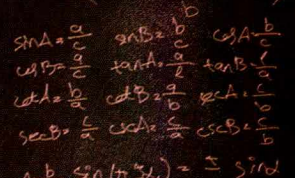 b
sinA=a/c sinB=b/c cosA=b/c
cosB=a/c tanA=a/b tanB=b/a
cotA=b/a cotB=a/b secA=c/b
secB=c/a cscA=c/a cscB=c/b
b sin( ) = ± sinα